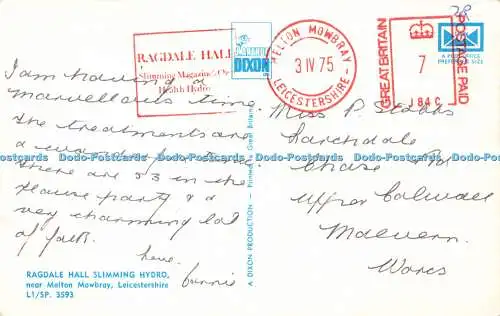 28
RAGDALE HALL
Slimming Magazine's Own
Health Hydro
DIXON
MELTON MOWBRAY
3 IV 75
LEICESTERSHIRE
GREAT BRITAIN
7
J84C
POSTAGE PAID
PREFERRED SIZE
I am having a
marvellous time.
The treatments are
there are 53 in the
House party & a
very charming lot
of folk.
Love
Miss P. Stubbs
Larchdale
Chase Rd
Upper Colwall
Malvern
Worcs
RAGDALE HALL SLIMMING HYDRO,
near Melton Mowbray, Leicestershire
L1/SP. 3593
A DIXON PRODUCTION - Printed in Great Britain
Dodo-Postcards Dodo-Postcards Dodo-Postcards Dodo-Postcards Dodo-Postcards Dodo-Postcards Dodo-Postcards